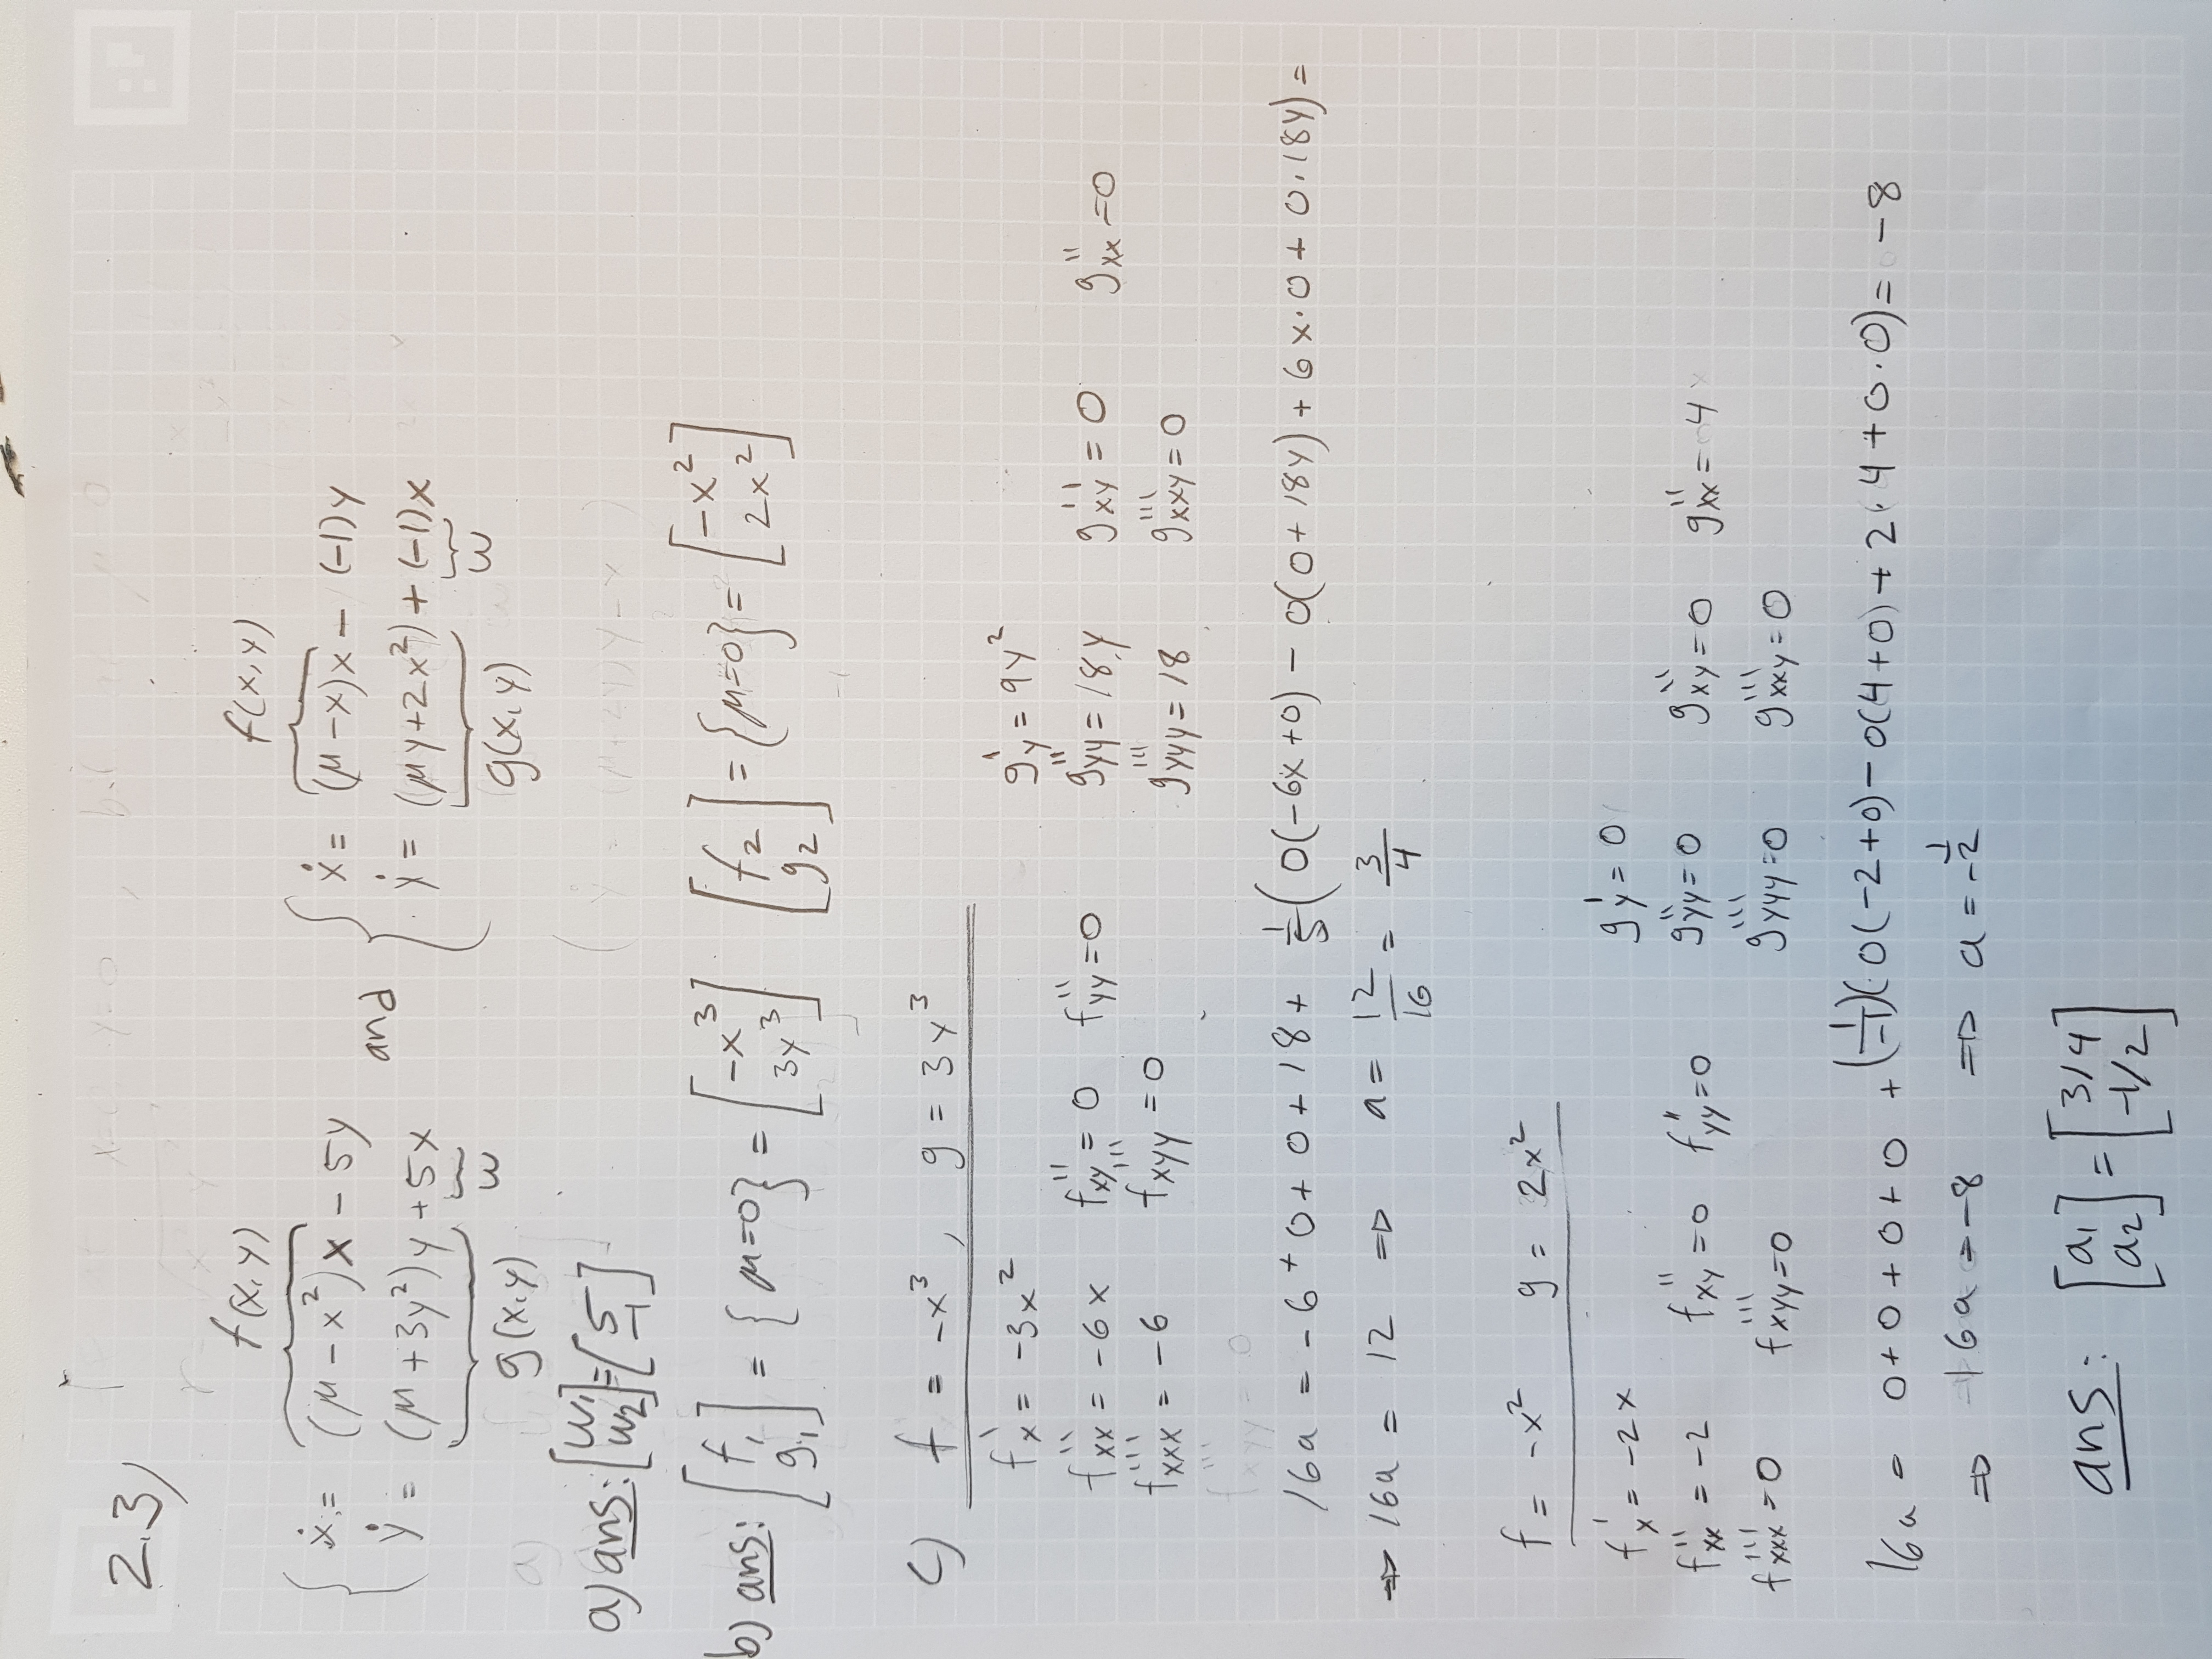 2.3)
f(x,y) f(x,y)
{ ẋ = (μ - x²)x - 5y and { ẋ = (μ - x)x - (-1)y
ẏ = (μ + 3y²)y + 5x ẏ = (μy + 2x²) + (-1)x
g(x,y) w g(x,y) w
a) ans: [w₁ w₂] = [5 -1]
b) ans: [f₁ g₁] = {μ=0} = [-x³ 3y³] [f₂ g₂] = {μ=0} = [-x² 2x²]
c) f = -x³, g = 3y³
f'x = -3x² g'y = 9y²
f''xx = -6x f''xy = 0 f''yy = 0 g''yy = 18y g''xy = 0 g''xx = 0
f'''xxx = -6 f'''xyy = 0 g'''yyy = 18 g'''xxy = 0
f'''xyy = 0
16a = -6 + 0 + 0 + 18 + 1/5 (0(-6x+0) - 0(0+18y) + 6x·0 + 0·18y) =
⇒ 16a = 12 ⇒ a = 12/16 = 3/4
f = -x² g = 2x²
f'x = -2x g'y = 0
f''xx = -2 f''xy = 0 f''yy = 0 g''yy = 0 g''xy = 0 g''xx = 4
f'''xxx = 0 f'''xyy = 0 g'''yyy = 0 g'''xxy = 0
16a = 0 + 0 + 0 + 0 + (1/-1)(0(-2+0) - 0(4+0) + 2·4 + 0·0) = -8
⇒ 16a = -8 ⇒ a = -1/2
ans: [a₁ a₂] = [3/4 -1/2]